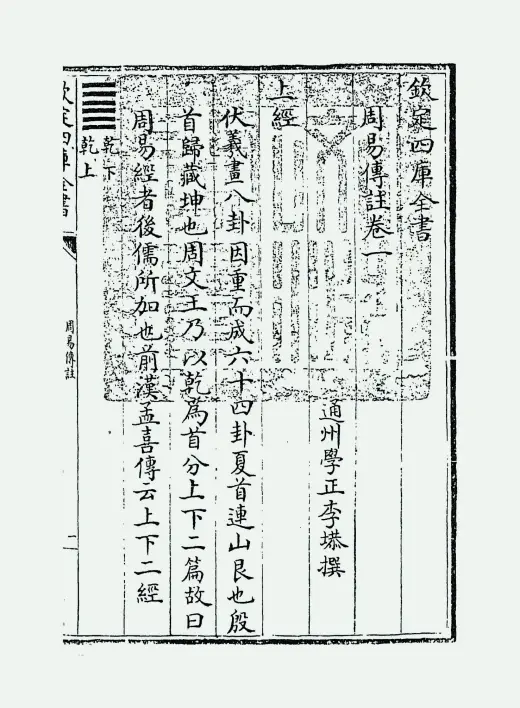 欽定四庫全書
周易傳註卷一
通州學正李塨撰
上經
伏羲畫八卦因重而成六十四卦夏首連山艮也殷
首歸藏坤也周文王乃以乾為首分上下二篇故曰
周易經者後儒所加也前漢孟喜傳云上下二經
乾下
乾上
欽定四庫全書
周易傳註
一